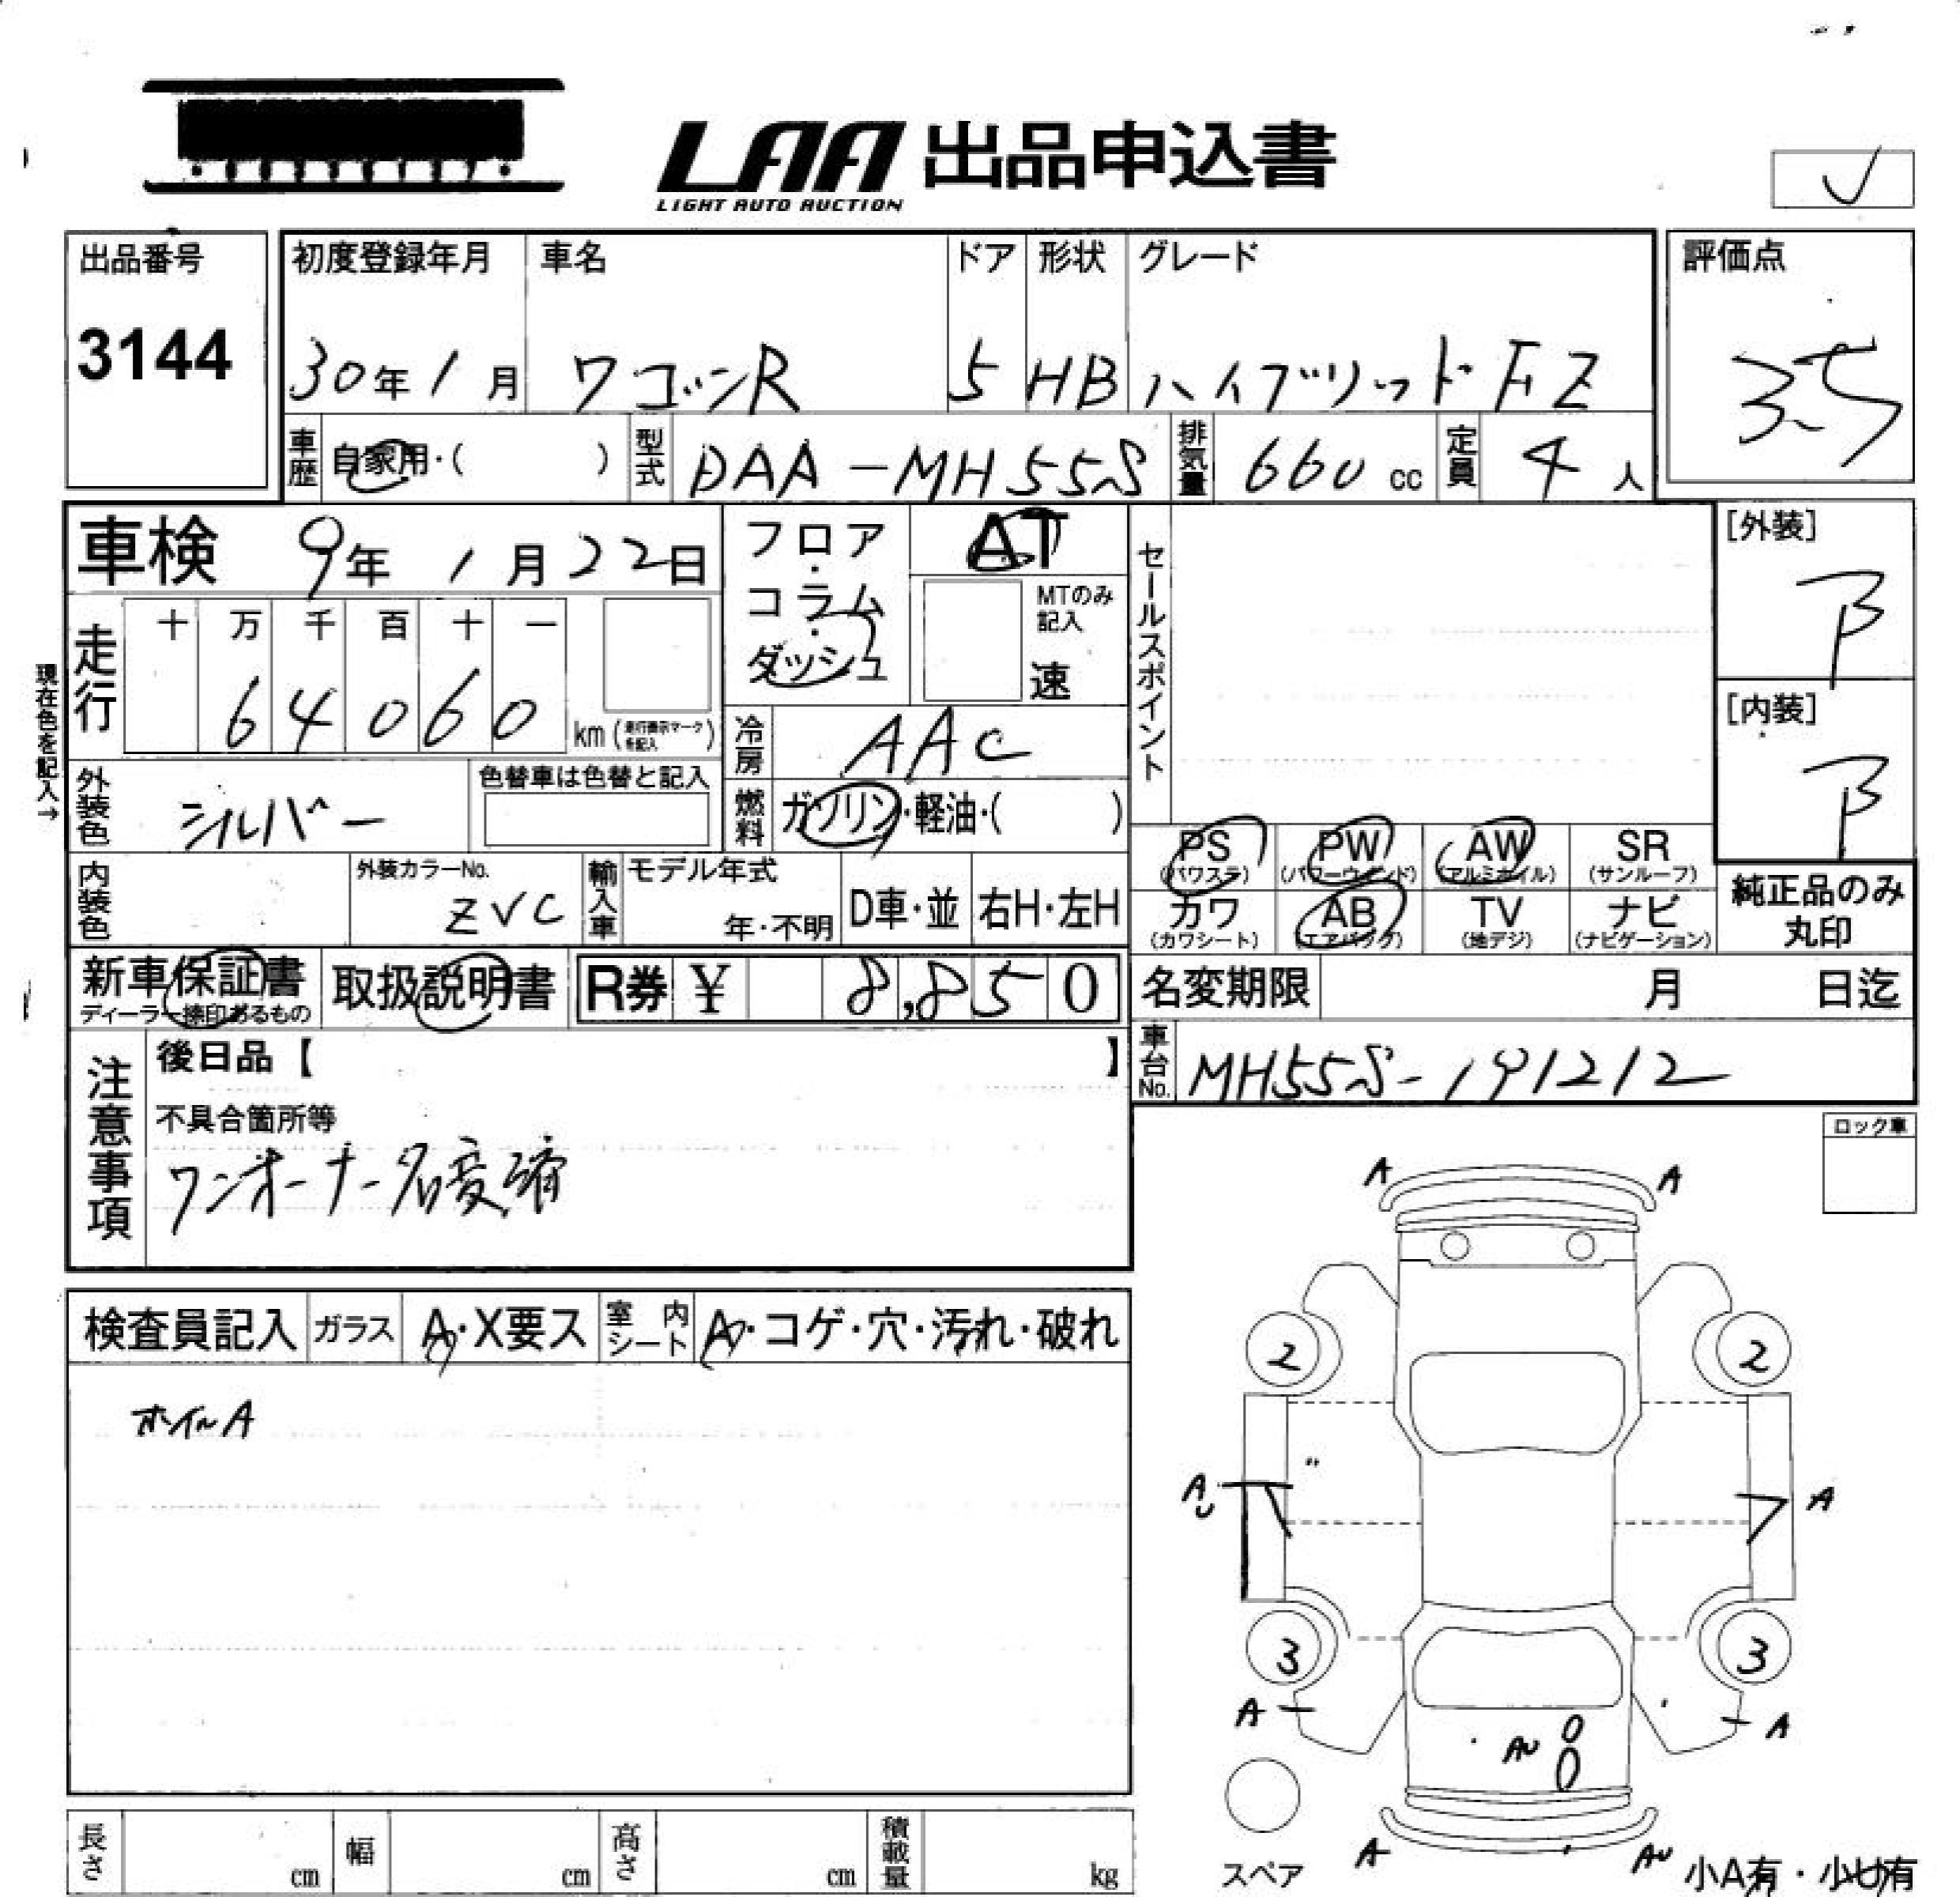 LAA 出品申込書
LIGHT AUTO AUCTION
出品番号
3144
初度登録年月 車名 ドア 形状 グレード
30年1月 ワゴンR 5 HB ハイブリッドFZ
車歴 自家用・( ) 型式 DAA-MH55S 排気量 660 cc 定員 4人
評価点
3.5
車検 9年 1月22日
フロア・コラム・ダッシュ
AT
MTのみ記入
速
セールスポイント
[外装]
B
[内装]
B
現在色を記入→
走行 十 万 千 百 十 一
6 4 0 6 0 km (走行表示マークを記入)
冷房 AAC
外装色 シルバー 色替車は色替と記入
燃料 ガソリン・軽油・( )
PS (パワステ) PW (パワーウインド) AW (アルミホイル) SR (サンルーフ)
カワ (カワシート) AB (エアバック) TV (地デジ) ナビ (ナビゲーション)
純正品のみ丸印
内装色 外装カラーNo. ZVC 輸入車 モデル年式 年・不明 D車・並 右H・左H
新車保証書 ディーラー捺印あるもの 取扱説明書 R券 ¥ 8,850
名変期限 月 日迄
車台No. MH55S-191212
注意事項
後日品【 】
不具合箇所等
ワンオーナー名変済
ロック車
検査員記入 ガラス A・X要ス 室内シート A・コゲ・穴・汚れ・破れ
ホイルA
A A
2 2
AU A
3 3
A A
AU
A AU
スペア
小A有・小U有
長さ cm 幅 cm 高さ cm 積載量 kg